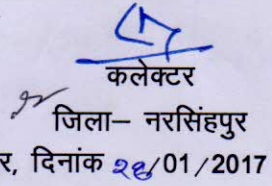 कलेक्टर
जिला– नरसिंहपुर
र, दिनांक 28/01/2017